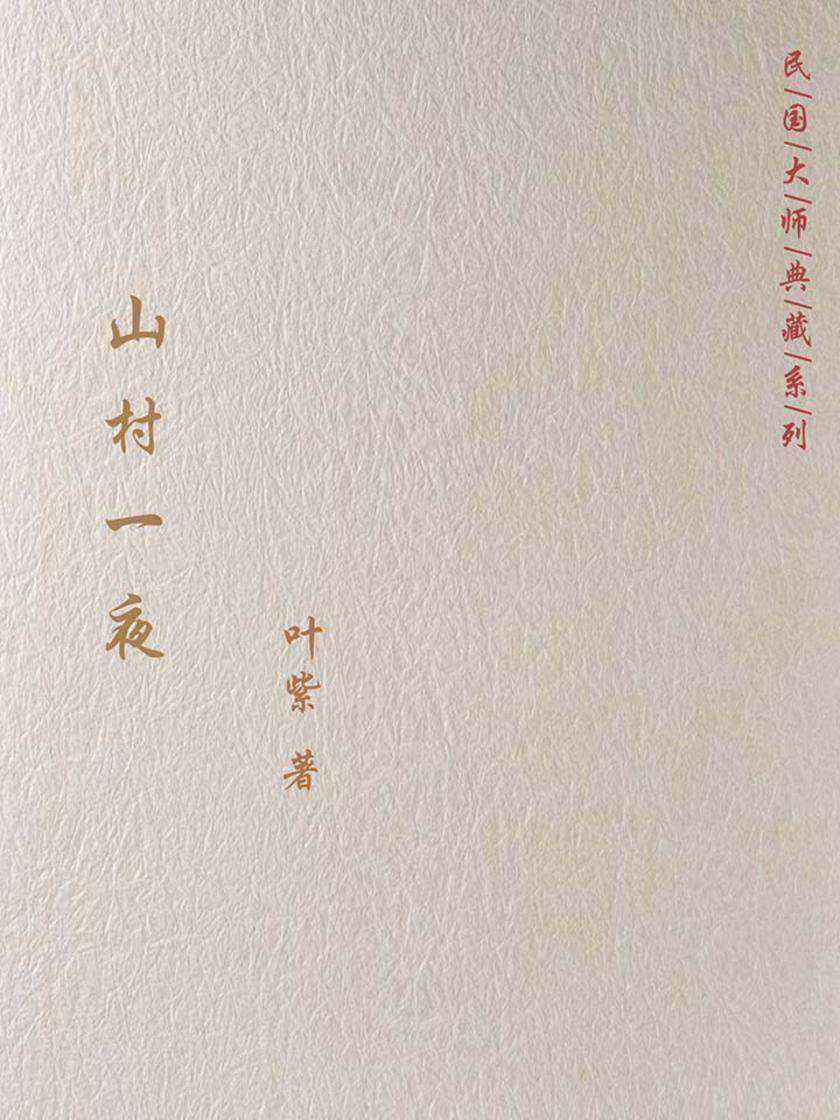 民|国|大|师|典|藏|系|列
山村一夜
叶紫 著